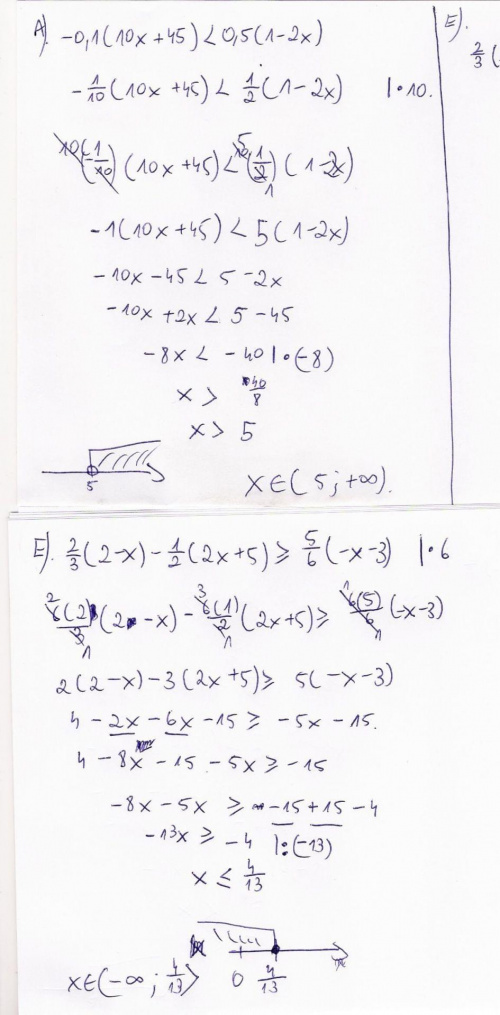 A). -0,1(10x+45) < 0,5(1-2x)
E).
2/3 (
-1/10 (10x+45) < 1/2 (1-2x) |·10.
10(-1/10) (10x+45) < 5 10(1/2) 1 (1-2x)
-1(10x+45) < 5(1-2x)
-10x -45 < 5 -2x
-10x +2x < 5 -45
-8x < -40 |·(-8)
x > 40/8
x > 5
5
x∈(5;+∞).
E). 2/3 (2-x) - 1/2 (2x+5) ≥ 5/6 (-x-3) |·6
2 6(2)/3 1 (2-x) - 3 6(1)/2 1 (2x+5) ≥ 1 6(5)/6 1 (-x-3)
2(2-x)-3(2x+5) ≥ 5(-x-3)
4 - 2x - 6x -15 ≥ -5x -15.
4 - 8x -15 -5x ≥ -15
-8x -5x ≥ -15+15 -4
-13x ≥ -4 |:(-13)
x ≤ 4/13
0 4/13
x∈(-∞; 4/13>